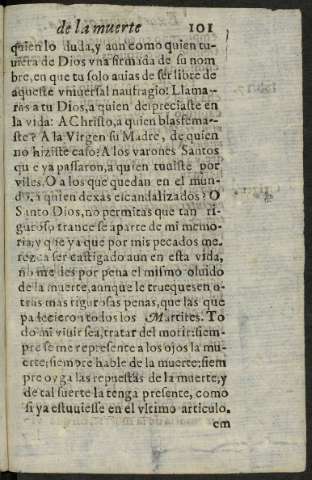 de la muerte 101
quien lo duda, y aun como quien tu-
uiera de Dios vna firmida de su nom
bre, en que tu solo auias de ser libre de
aqueste vniuersal naufragio: Llama-
ras a tu Dios, a quien despreciaste en
la vida: A Christo, a quien blasfema-
ste? A la Virgen su Madre, de quien
no hiziste caso? A los varones Santos
que ya passaron, a quien tuuiste por
viles. O a los que quedan en el mun-
do, a quien dexas escandalizados? O
Santo Dios, no permitas que tan ri-
guroso trance se aparte de mi memo-
ria, y que ya que por mis pecados me-
rezca ser castigado aun en esta vida,
no me des por pena el mismo oluido
de la muerte, aunque le truequesen o-
tras mas rigurosas penas, que las que
padecieron todos los Martires. To
do mi viuir sea, tratar del morir: siem-
pre se me represente a los ojos la mu-
erte; siempre hable de la muerte; siem
pre oyga las repuestas de la muerte, y
de tal suerte la tenga presente, como
si ya estuuiesse en el vltimo articulo.
em